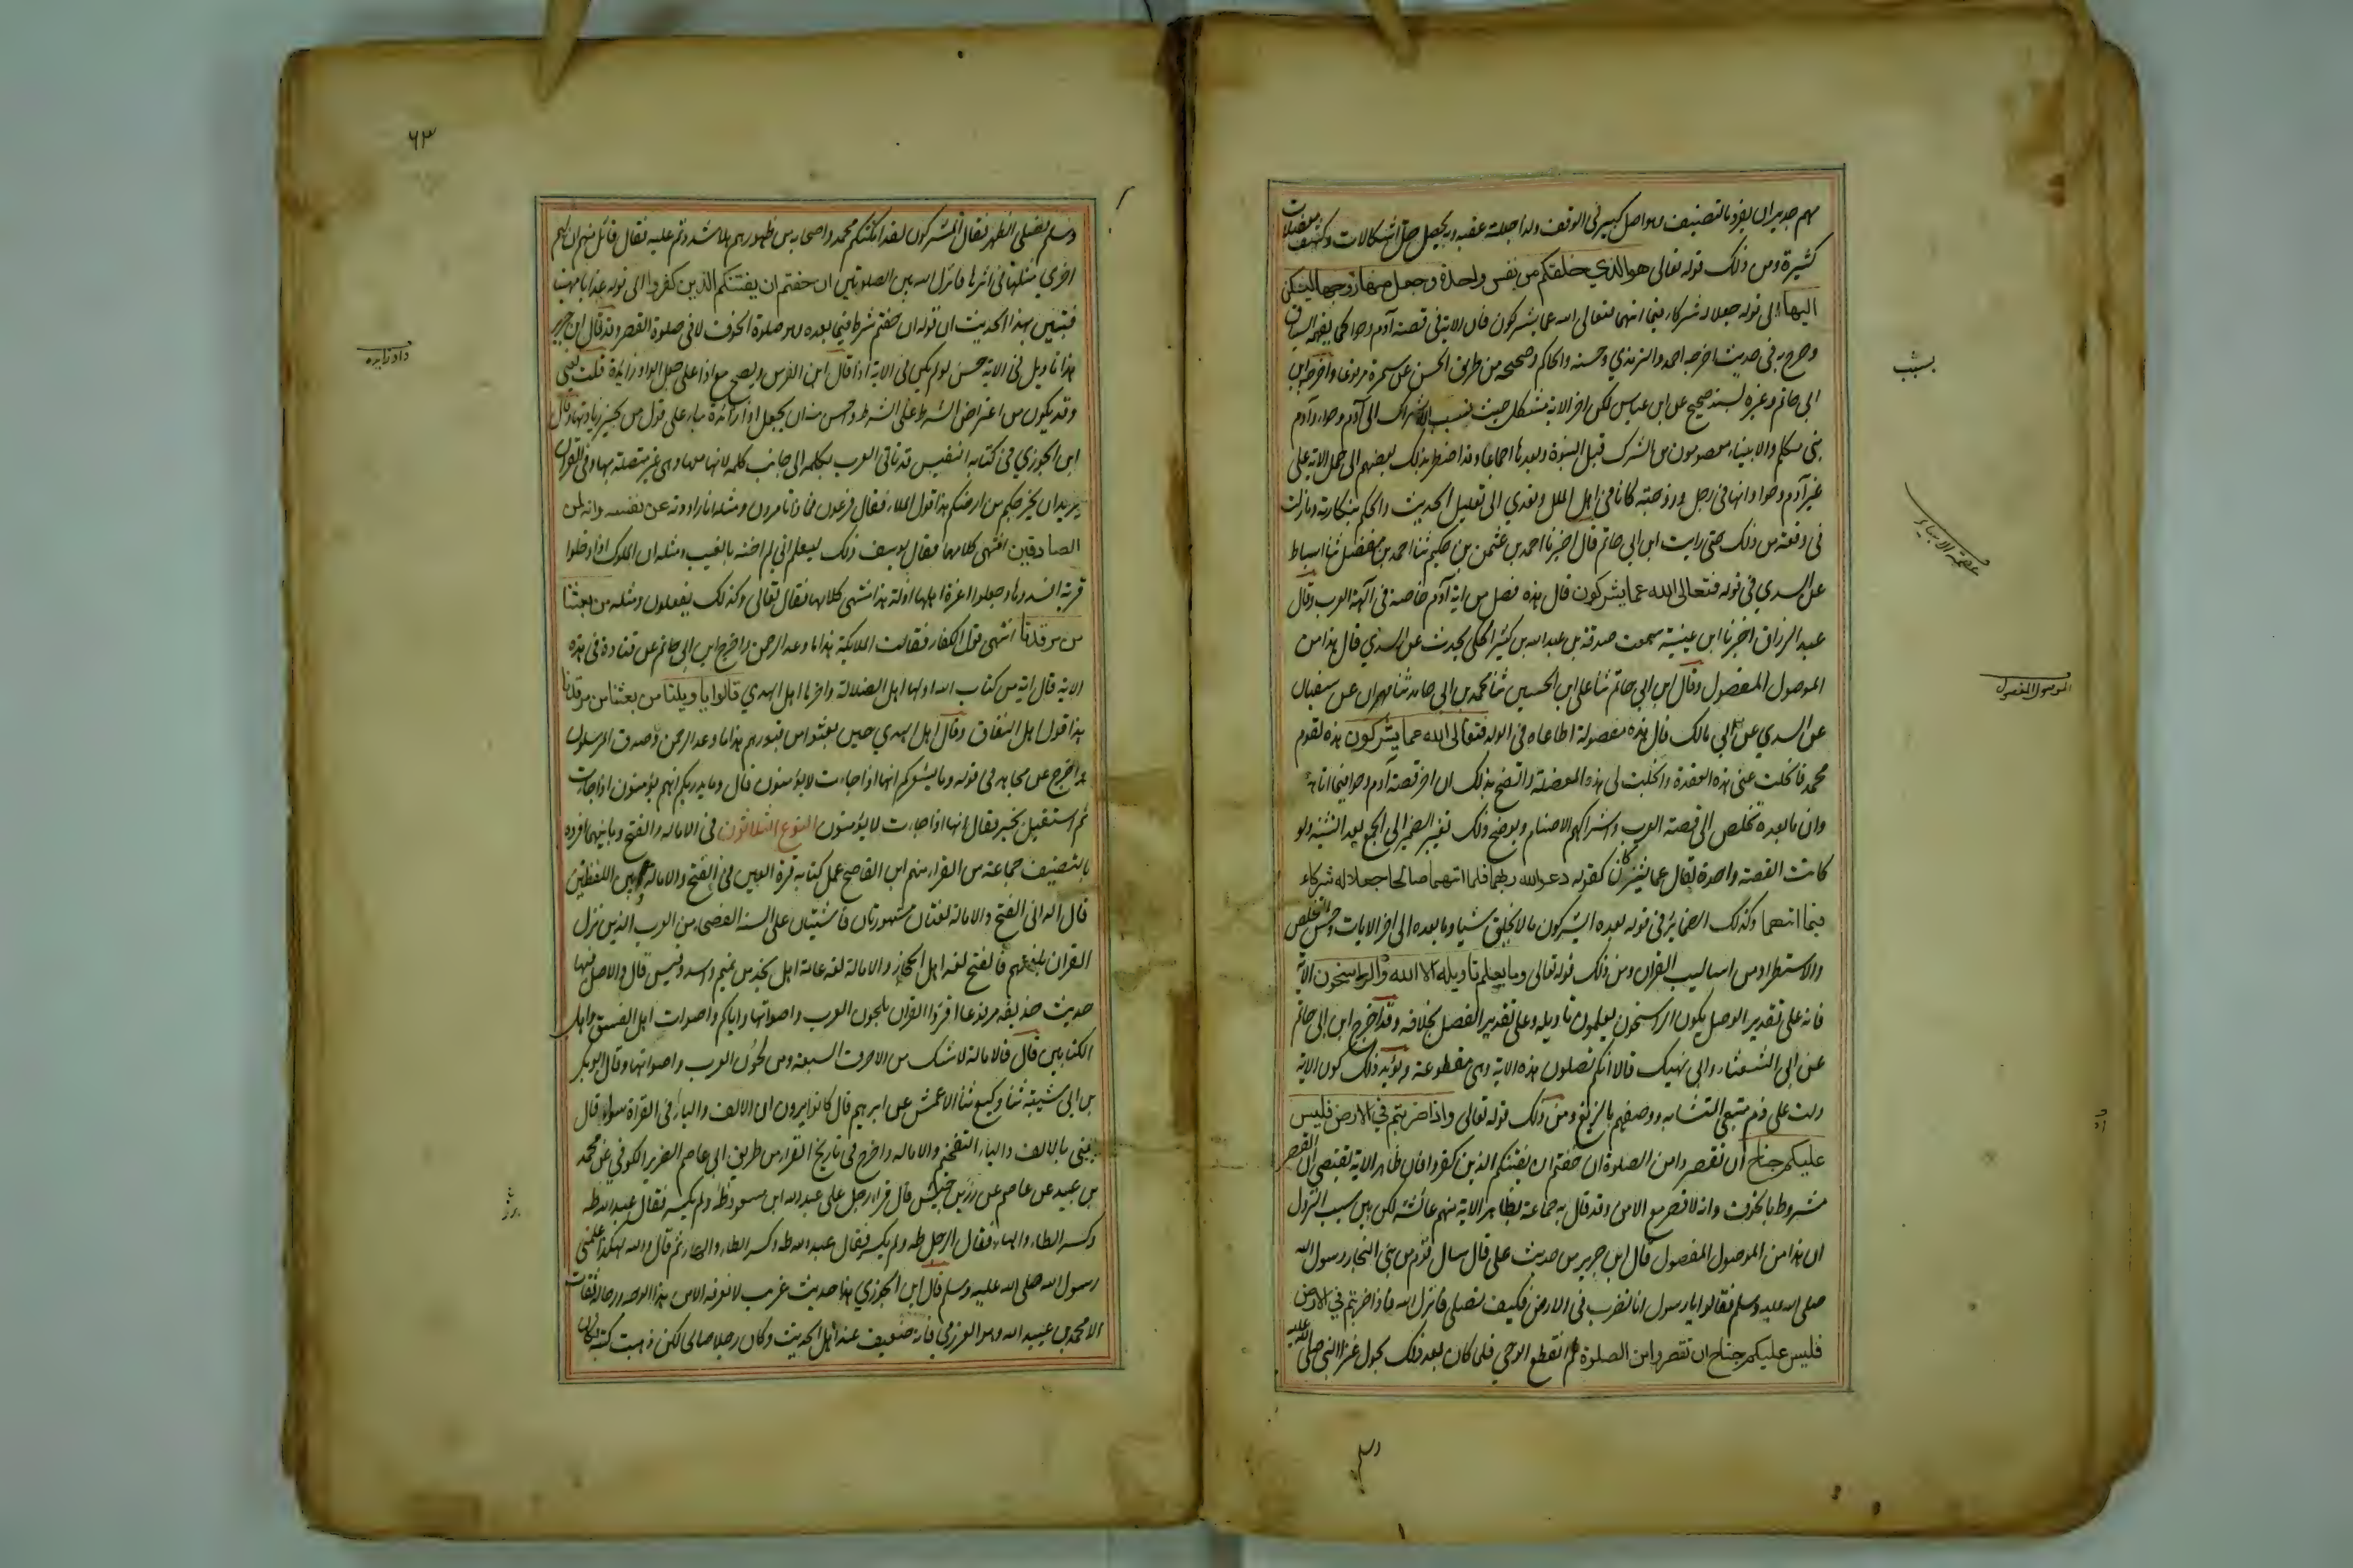 مهم جدير ان يفرد بالتصنيف وهو اصل كبير فى الوقف ولهذا جعلته عقبه وبه يحصل حل اشكالات وكشف معضلات
كثيرة ومن ذلك قوله تعالى هو الذي خلقكم من نفس واحدة وجعل منها زوجها ليسكن
اليها الى قوله جعلا له شركاء فيما اتهما فتعالى الله عما يشركون فان الاية فى قصة آدم وحوا كما يفهمه السياق
وصرح به فى حديث اخرجه احمد والترمذي وحسنه والحاكم وصححه من طريق الحسن عن سمرة مرفوعا واخرجه ابن
ابى حاتم وغيره بسند صحيح عن ابن عباس لكن اخر الاية مشكل حيث نسب الاشراك الى آدم وحواء وآدم
نبى مكلم والانبياء معصومون من الشرك قبل النبوة وبعدها اجماعا وقد اضطر بذلك بعضهم الى حمل الاية على
غير آدم وحوا وانها فى رجل وزوجته كانا فى اهل الملل وتعدي الى تعليل الحديث والحكم بنكارته وما زلت
فى وقفة من ذلك حتى رايت ابن ابى حاتم قال اخبرنا احمد بن عثمن بن حكيم ثنا احمد بن مفضل ثنا اسباط
عن السدي فى قوله فتعالى الله عما يشركون قال هذه فصل من اية آدم خاصة فى آلهة العرب وقال
عبد الرزاق اخبرنا ابن عيينة سمعت صدقة بن عبد الله بن كثير المكى يحدث عن السدي قال هذا من
الموصول المفصول وقال ابن ابى حاتم ثنا على ابن الحسين ثنا محمد بن ابى حماد ثنا مهران عن سفيان
عن السدي عن ابي مالك قال هذه مفصولة اطاعاه فى الولد فتعالى الله عما يشركون هذه لقوم
محمد فانحلت عنى هذه العقدة وانجلت لى هذه المعضلة واتضح بذلك ان اخر قصة آدم وحوا فيما اتاهما
وان ما بعده تخلص الى قصة العرب واشراكهم الاصنام ويوضح ذلك تغيير الضمير الى الجمع بعد التثنية ولو
كانت القصة واحدة لقال عما يشركان كقوله دعوا الله ربهما فلما اتهما صالحا جعلا له شركاء
فيما اتهما وكذلك الضماير فى قوله بعده ايشركون ما لا يخلق شيا وما بعده الى اخر الايات وحسن التخلص
والاستطراد من اساليب القران ومن ذلك قوله تعالى وما يعلم تاويله الا الله والراسخون الاية
فانه على تقدير الوصل يكون الراسخون يعلمون تاويله وعلى تقدير الفصل بخلافه وقد اخرج ابن ابى حاتم
عن ابى الشعثاء وابى نهيك قالا انكم تصلون هذه الاية وهى مقطوعة ويؤيد ذلك كون الاية
دلت على ذم متبعى المتشابه ووصفهم بالزيغ ومن ذلك قوله تعالى واذا ضربتم في الارض فليس
عليكم جناح ان تقصروا من الصلوة ان خفتم ان يفتنكم الذين كفروا فان ظاهر الاية تقتضى ان القصر
مشروط بالخوف وانه لا قصر مع الامن وقد قال به جماعة بظاهر الاية منهم عائشة لكن بين سبب النزول
ان هذا من الموصول المفصول قال ابن جرير من حديث على قال سال قوم من بنى النجار رسول الله
صلى الله عليه وسلم فقالوا يا رسول انا نضرب فى الارض فكيف نصلى فانزل الله فاذا ضربتم في الارض
فليس عليكم جناح ان تقصروا من الصلوة ثم انقطع الوحي فلما كان بعد ذلك بحول غزا النبى صلى الله عليه
وسلم
عصمة الانبياء
الموصول المفصول
٦٣
وسلم فصلى الظهر فقال المشركون لقد امكنكم محمد واصحابه من ظهورهم هلا شددتم عليه فقال قائل منهم ان لهم
اخري مثلها فى اثرها فانزل الله بين الصلوتين ان خفتم ان يفتنكم الذين كفروا الى قوله عذابا مهينا
فتبين بهذا الحديث ان قوله ان خفتم شرط فيما بعده وهو صلوة الخوف لا فى صلوة القصر وقد قال ابن جرير
هذا تاويل فى الاية حسن لو لم يكن فى الاية اذا قال ابن الفرس ويصح مع اذا على جعل الواو زايدة قلت يعنى
وقد يكون من اعتراض الشرط على الشرط واحسن منه ان يجعل اذا زائدة بناء على قول من يجيز زيادتها وقال
ابن الجوزي فى كتابه النفيس قد تاتى العرب بكلمه الى جانب كلمه كانها معها وهى غير متصلة بها وفى القران
يريد ان يخرجكم من ارضكم هذا قول الملاء فقال فرعون فماذا تامرون ومثله انا راودته عن نفسه وانه لمن
الصادقين انتهى كلامها فقال يوسف ذلك ليعلم اني لم اخنه بالغيب ومثله ان الملوك اذا دخلوا
قرية افسدوها وجعلوا اعزة اهلها اذلة هذا منتهى كلامها فقال تعالى وكذلك يفعلون ومثله من بعثنا
من مرقدنا انتهى قول الكفار فقالت الملايكة هذا ما وعد الرحمن واخرج ابن ابى حاتم عن قتادة فى هذه
الاية قال اية من كتاب الله اولها اهل الضلالة واخرها اهل الهدي قالوا يا ويلنا من بعثنا من مرقدنا
هذا قول اهل النفاق وقال اهل الهدي حين بعثوا من قبورهم هذا ما وعد الرحمن وصدق المرسلون
واخرج عن مجاهد فى قوله وما يشعركم انها اذا جاءت لا يؤمنون قال وما يدريكم انهم يؤمنون اذا جاءت
ثم استقبل يخبر فقال انها اذا جاءت لا يؤمنون النوع الثلاثون فى الاماله والفتح وما بينهما افرده
بالتصنيف جماعة من القراء منهم ابن القاصح عمل كتابه قرة العين فى الفتح والامالة وبين اللفظين
قال الدانى الفتح والامالة لغتان مشهورتان فاشيتان على السنة الفصحى من العرب الذين نزل
القران بلغتهم فالفتح لغه اهل الحجاز والامالة لغه عامة اهل نجد من تميم واسد وقيس قال والاصل فيها
حديث حذيفه مرفوعا اقرؤا القران بلحون العرب واصواتها واياكم واصوات اهل الفسق واهل
الكتابين قال فالامالة لا شك من الاحرف السبعة ومن لحون العرب واصواتها وقال ابو بكر
بن ابى شيبة ثنا وكيع ثنا الاعمش عن ابرهيم قال كانوا يرون ان الالف والياء فى القراة سواء قال
يعنى بالالف والياء التفخيم والاماله واخرج فى تاريخ القراء من طريق ابى عاصم الضرير الكوفي عن محمد
بن عبيد عن عاصم عن زر بن حبيش قال قراء رجل على عبد الله ابن مسعود طه ولم يكسر فقال عبد الله طه
وكسر الطاء والهاء فقال الرجل طه ولم يكسر فقال عبد الله طه وكسر الطاء والهاء ثم قال والله لهكذا علمنى
رسول الله صلى الله عليه وسلم قال ابن الجوزي هذا حديث غريب لا نعرفه الا من هذا الوجه ورجاله ثقات
الا محمد بن عبيد الله وهو العزرمي فانه ضعيف عند اهل الحديث وكان رجلا صالحا لكن ذهبت كتبه فكان